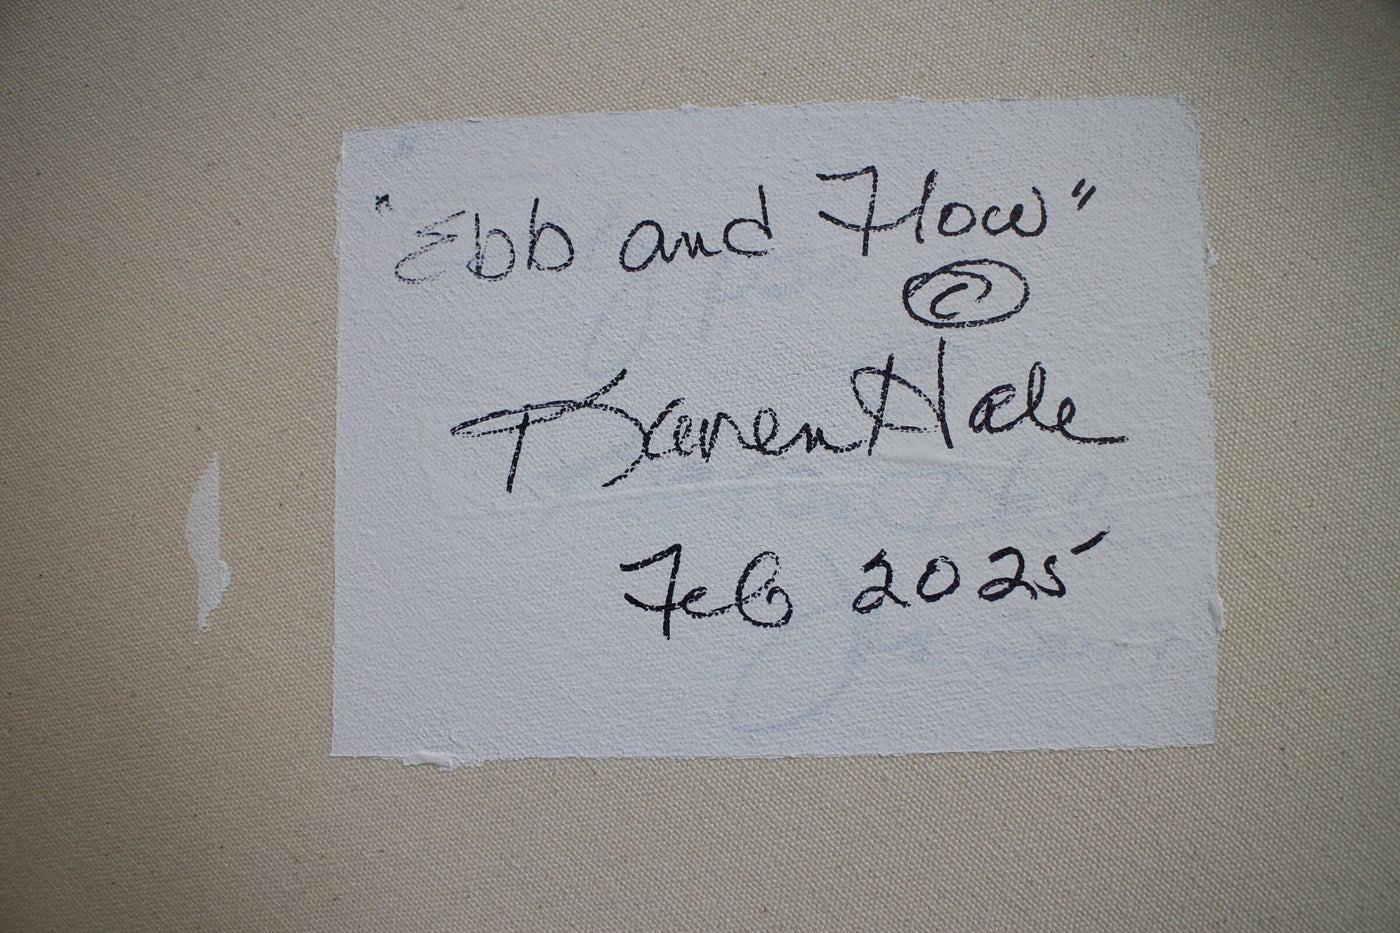 "Ebb and Flow"
©
Karen Hale
Feb 2025